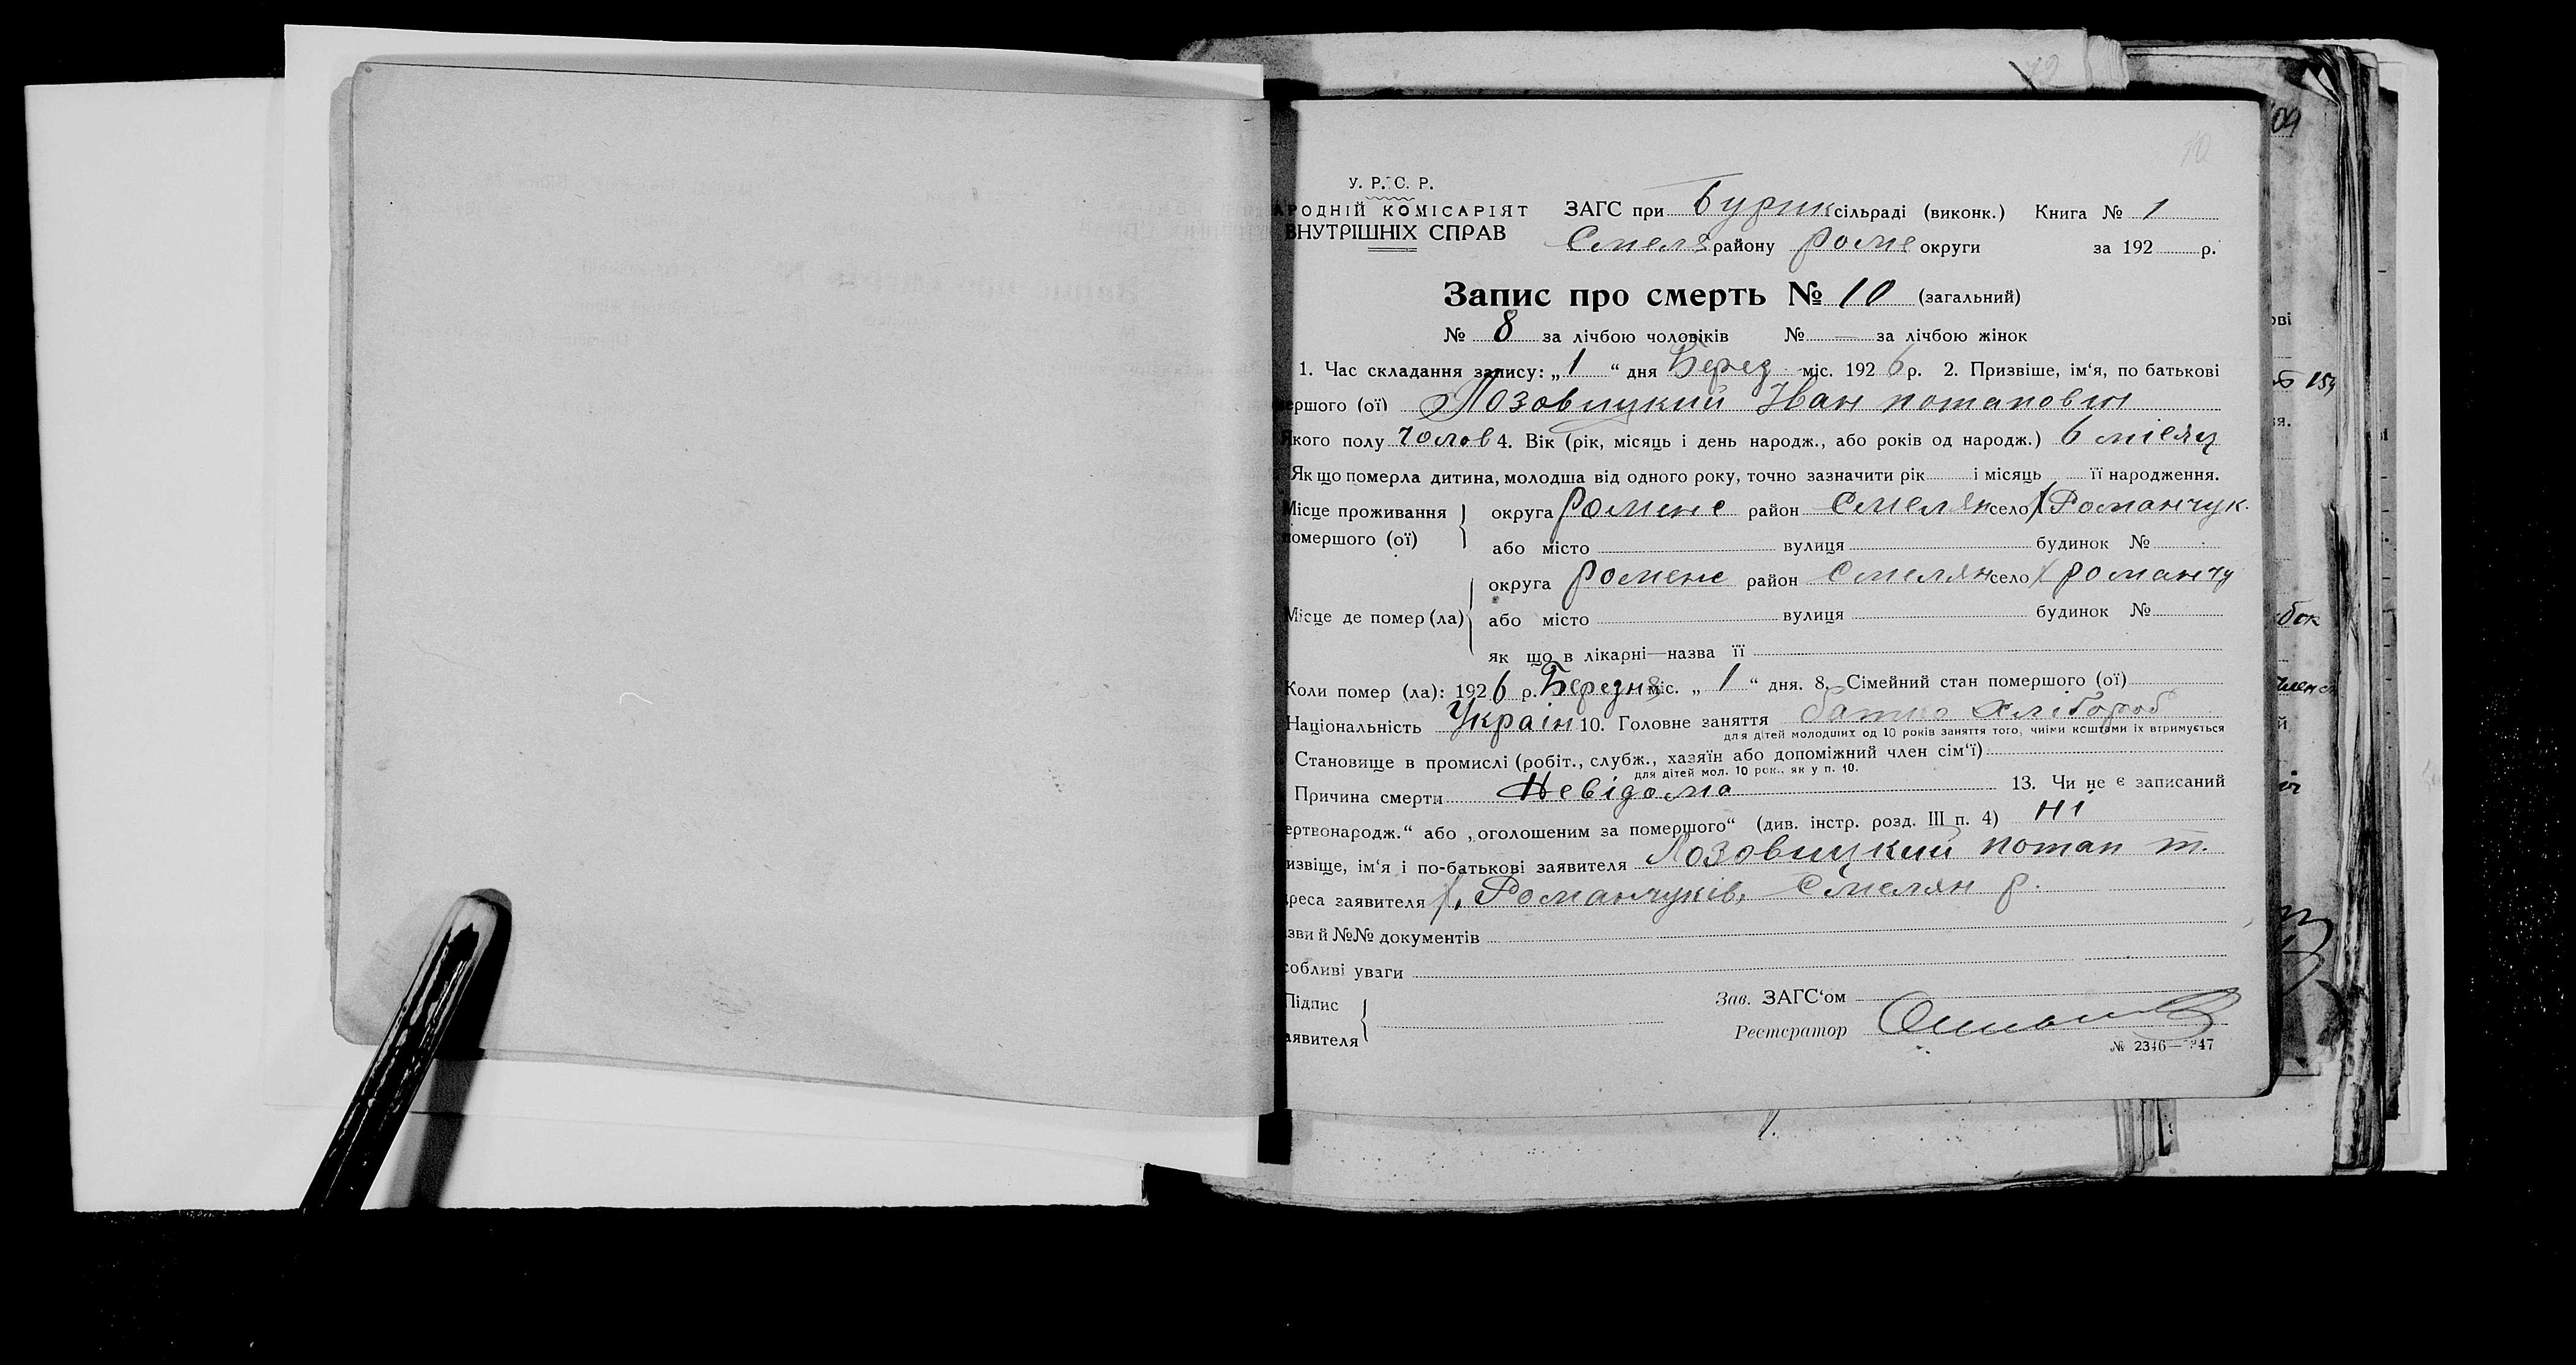 У. Р. С. Р.
АРОДНІЙ КОМІСАРІЯТ ЗАГС при Бурик сільраді (виконк.) Книга № 1
ВНУТРІШНІХ СПРАВ Смеля району Роме округи за 192 р.
Запис про смерть № 10 (загальний)
№ 8 за лічбою чоловіків № — за лічбою жінок
1. Час складання запису: „ 1 “ дня Берез міс. 192 6 р. 2. Призвіше, ім‘я, по батькові
ершого (ої) Лозовицкий Іван потапович
якого полу чолов 4. Вік (рік, місяць і день народж., або років од народж.) 6 місяц
Як що померла дитина, молодша від одного року, точно зазначити рік і місяць її народження.
Місце проживання округа Роменс район Смелян село х Романчук.
помершого (ої) або місто вулиця будинок №
округа Роменс район Смелян село х романчу
Місце де помер (ла) або місто вулиця будинок №
як що в лікарні—назва її
Коли помер (ла): 192 6 р. Березня міс. „ 1 “ дня. 8. Сімейний стан помершого (ої)
Національність Україн 10. Головне заняття батько хлібороб
для дітей молодших од 10 років заняття того, чиїми коштами їх втримується
Становище в промислі (робіт., слубж., хазяїн або допоміжний член сім‘ї)
для дітей мол. 10 рок., як у п. 10.
Причина смерти Невідома 13. Чи не є записаний
ертвонародж.“ або „оголошеним за помершого“ (див. інстр. розд. III п. 4) Ні
извіще, ім‘я і по-батькові заявителя Лозовицкий потап т.
дреса заявителя х. Романчуків, Смелян р.
зви й №№ документів
собливі уваги
Підпис Зав. ЗАГС‘ом
аявителя Реєстратор
№ 2346—